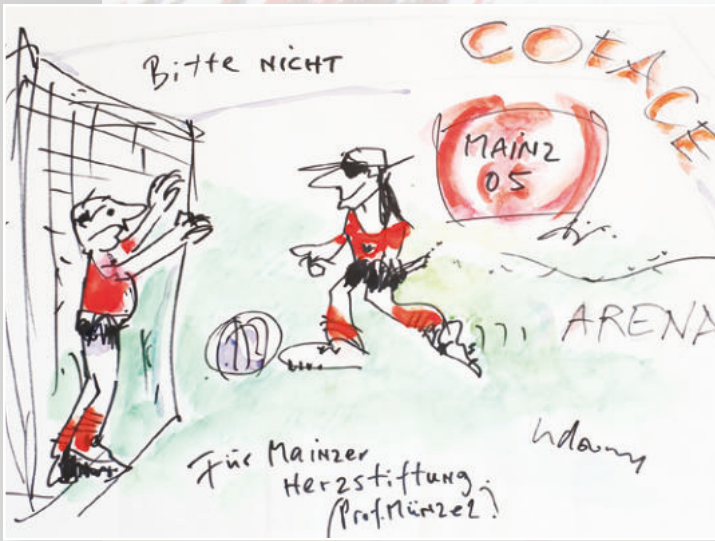 Bitte NICHT
COFACE
MAINZ
05
ARENA
Für Mainzer
Herzstiftung
(Prof. Münzel!)